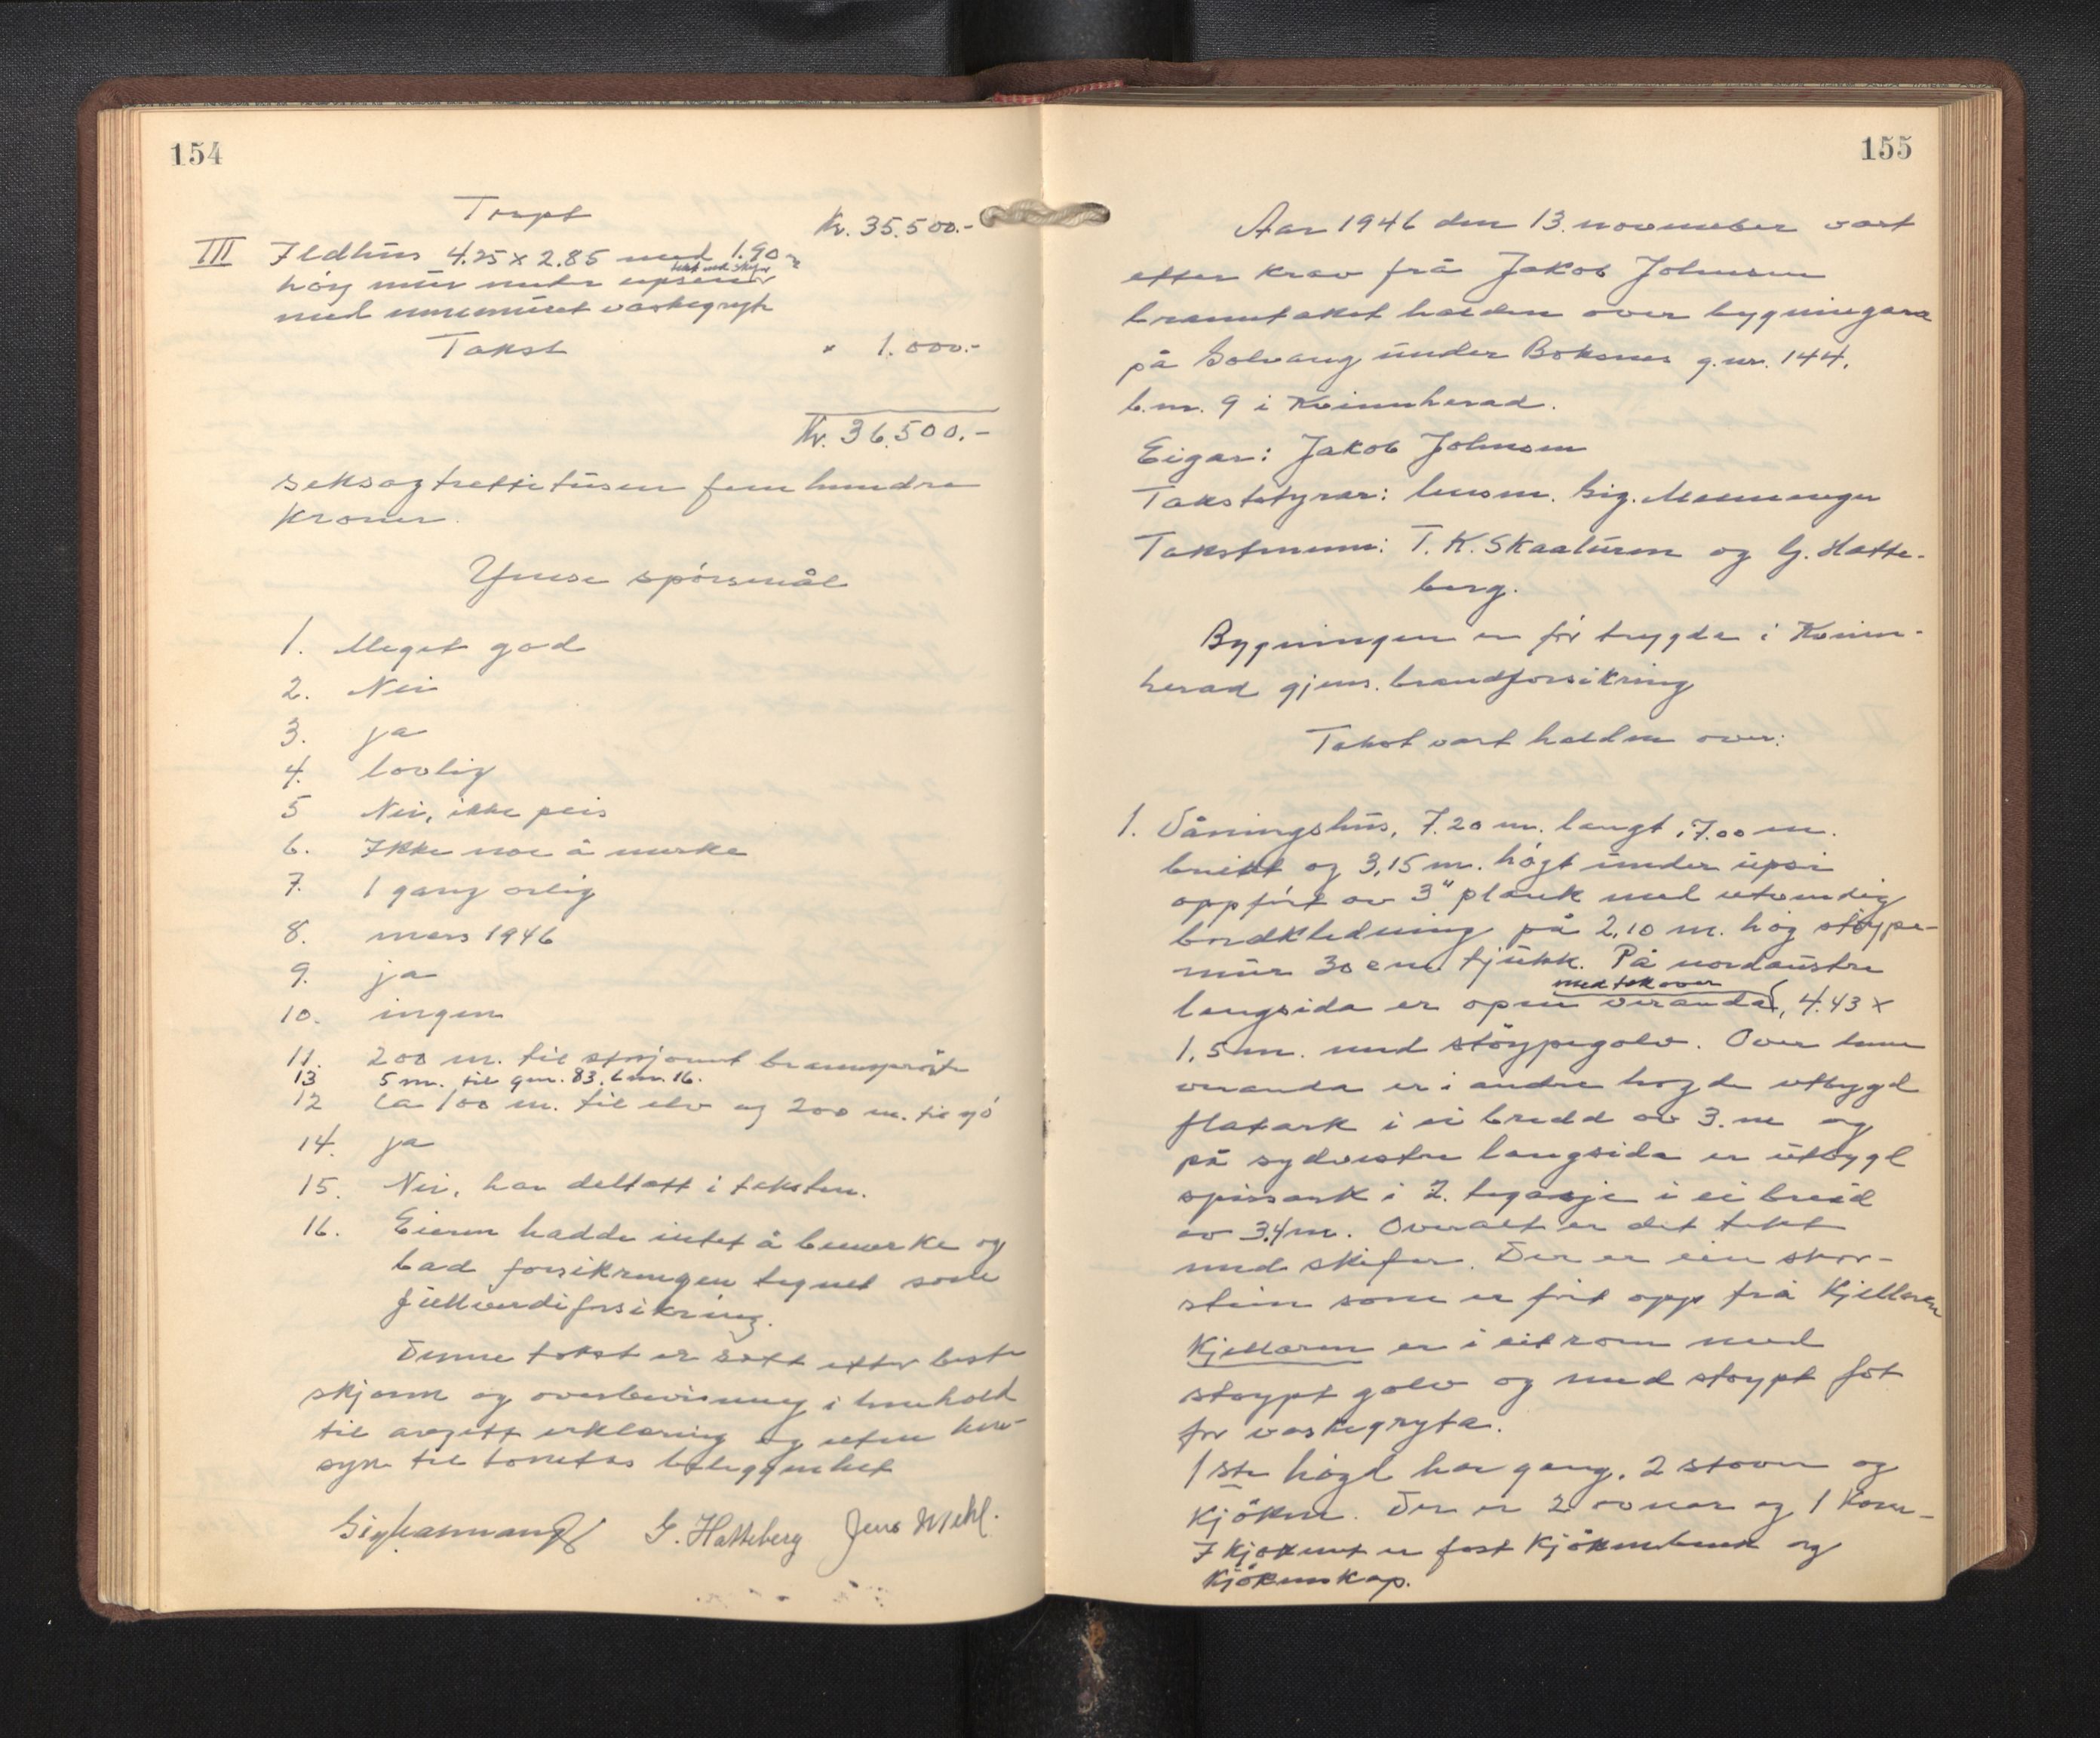 154
Trspt Kr. 35.500.-
III Ildhús 4.25 x 2.85 med 1.90 m
tekt med skifer
høg múr under upsene
med innmúret vaskegryte
Takst " 1.000.-
Kr. 36.500.-
seksogtrettitúsen fem hundre
kroner.
Ymse spörsmål
1. Meget god
2. Nei
3. ja
4. lovlig
5 Nei, ikke peis
6. Ikke noe å merke
7. 1 gang årlig
8. mars 1946
9. ja
10. ingen
11. 200 m. til brannsprøyte
13 5 m. til gnr. 83. bnr. 16.
12 ca 100 m. til elv og 200 m. til sjö
14. ja
15. Nei, har deltatt i taksten.
16. Eieren hadde intet å bemerke og
bad forsikringen tegnet som
fúllverdiforsikring.
Denne takst er satt etter beste
skjönn og overbevisning i henhold
til avgitt erklæring og uten hen-
syn til tomtas beliggenhet
G. Hatteberg Jens Mehl.
155
Aar 1946 den 13. november vart
etter krav frå Jakob Johnsen
branntakst halden over bygningara
på Solvang únder Boksnes g.nr. 144.
b.nr. 9 i Kvinnherad.
Eigar: Jakob Johnsen
Takststyrar: lensm. Sig.
Takstmenn: T. K. Skaalúren og G. Hatte-
berg.
Bygningen er för trygda i Kvinn-
herad gjens. brandforsikring
Takst vart halden over:
1. Våningshús, 7.20 m. langt, 7.00 m.
breitt og 3,15 m. högt únder úpsi
oppfört av 3" plank med utvendig
bordkledning på 2,10 m. hög stöype-
múr 30 cm tjúkk. På nordaústre
med tak over
langsida er open veranda, 4.43 x
1,5 m. med stöypegolv. Over denne
veranda er i andre högde utbygd
flatark i ei bredd av 3. m og
på sydvestre langsida er útbygd
spissark i 2. legasje i ei breid
av 3.4 m. Overalt er det tekt
med skifer. Der er ein skor-
stein som er fört opp frå Kjellaren
Kjellaren er i eit rom med
stöypt golv og med stöypt fot
for vaskegryta.
1ste högd har gang, 2 stover og
Kjöken. Der er 2 ovnar og 1 Kom-
I kjökenet er fast kjökenbenk og
kjökenskap.